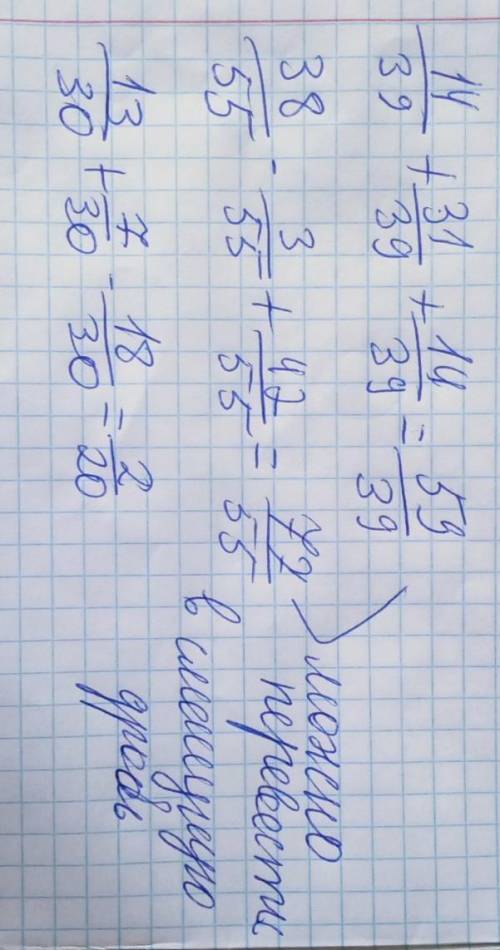 14/39 + 31/39 + 14/39 = 59/39
38/55 - 3/55 + 47/55 = 72/55
13/30 + 7/30 - 18/30 = 2/20
можно
перевести
в смешаную
дробь